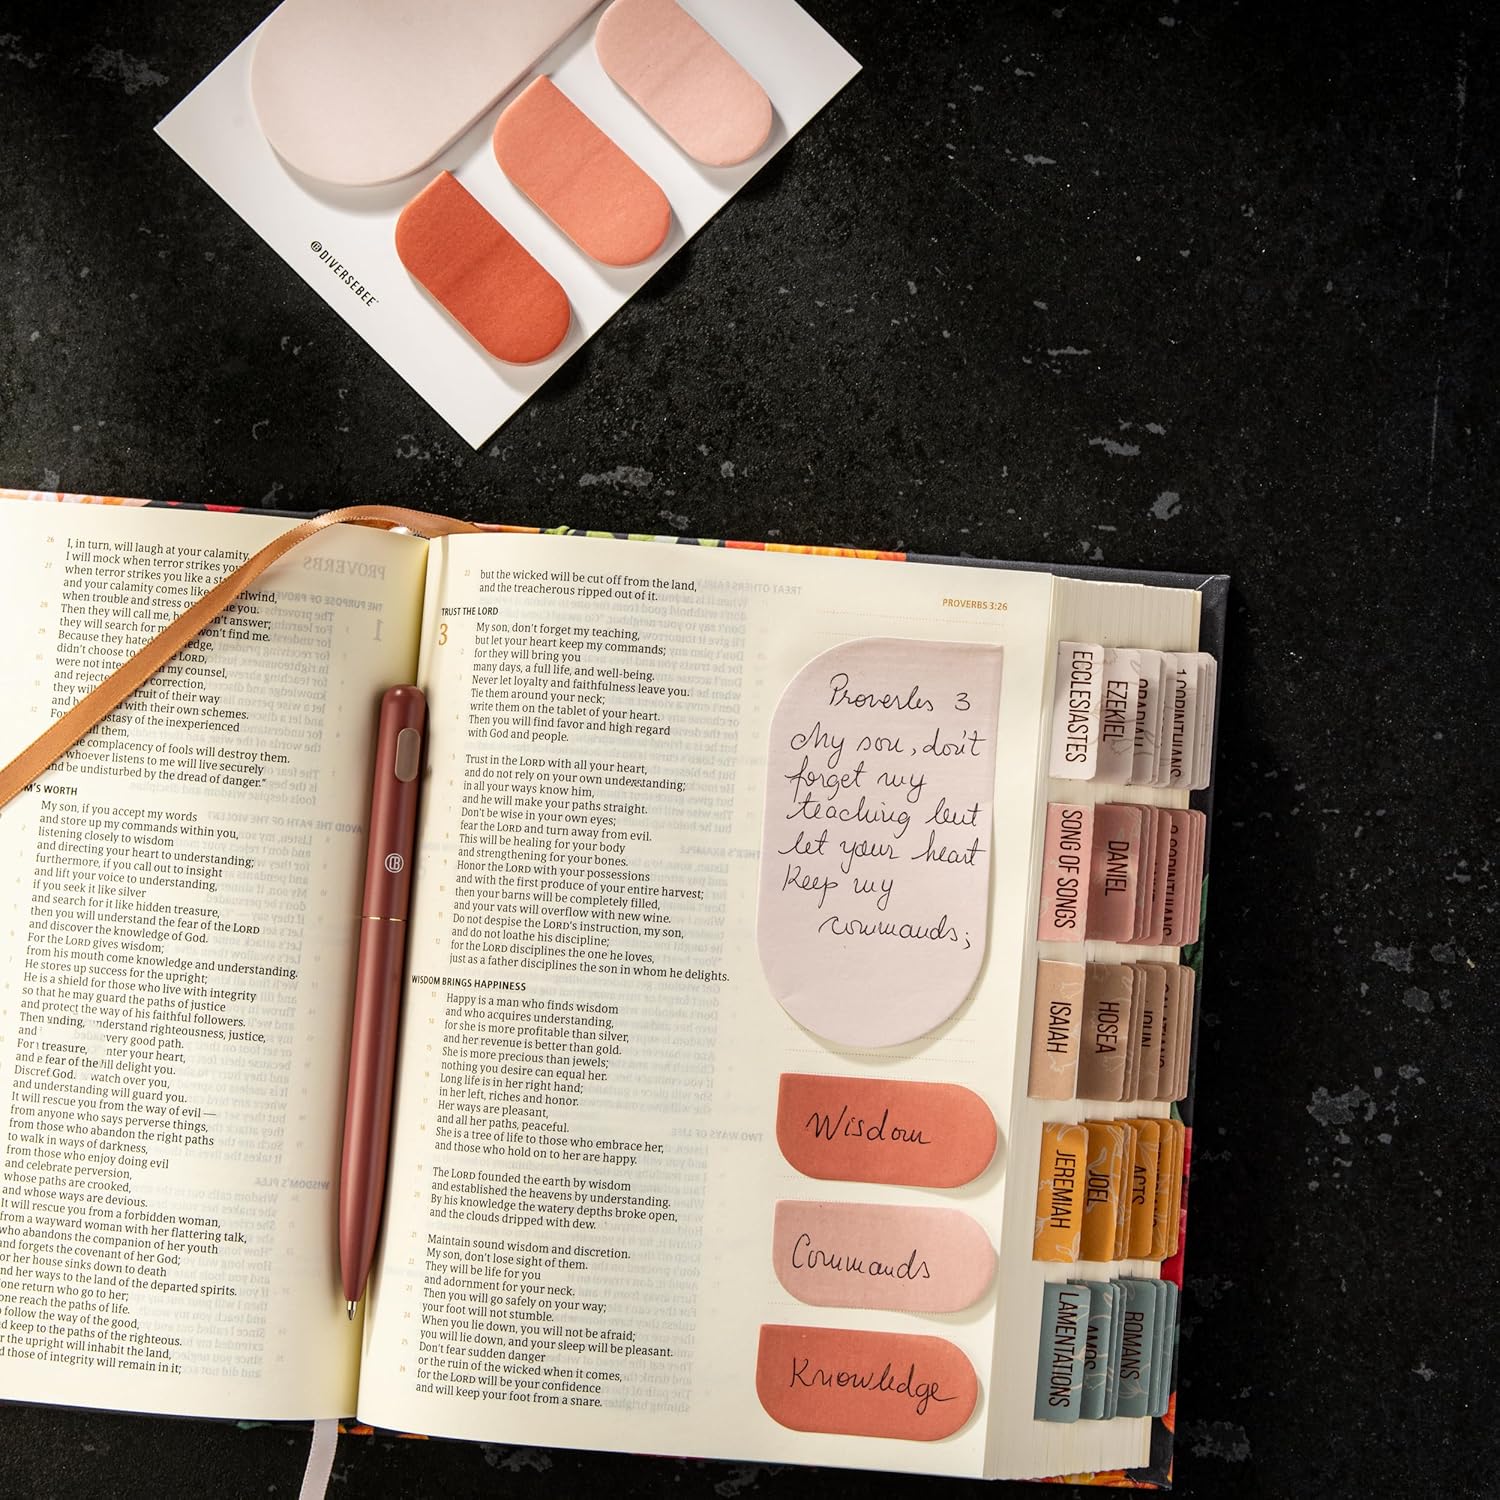 DIVERSEBEE
I, in turn, will laugh at your calamity.
I will mock when terror strikes
when terror strikes you like a
and your calamity comes like
when trouble and stress
Then they will call me,
they will search for
Because they
didn't choose to
were not
and
they will
and with their own schemes.
of the inexperienced
the complacency of fools will destroy them.
whoever listens to me will live securely
and be undisturbed by the dread of danger."
WORTH
My son, if you accept my words
and store up my commands within you,
listening closely to wisdom
and directing your heart to understanding;
furthermore, if you call out to insight
and lift your voice to understanding,
if you seek it like silver
and search for it like hidden treasure,
then you will understand the fear of the LORD
and discover the knowledge of God.
For the LORD gives wisdom;
from his mouth come knowledge and understanding.
He stores up success for the upright;
He is a shield for those who live with integrity
so that he may guard the paths of justice
and protect the way of his faithful followers.
Then understand righteousness, justice,
and every good path.
For enter your heart,
and will delight you.
watch over you,
and understanding will guard you.
It will rescue you from the way of evil —
from anyone who says perverse things,
from those who abandon the right paths
to walk in ways of darkness,
from those who enjoy doing evil
and celebrate perversion,
whose paths are crooked,
and whose ways are devious.
It will rescue you from a forbidden woman,
from a wayward woman with her flattering talk,
who abandons the companion of her youth
and forgets the covenant of her God;
for her house sinks down to death
and her ways to the land of the departed spirits.
none return who go to her;
none reach the paths of life.
follow the way of the good,
and keep to the paths of the righteous.
For the upright will inhabit the land,
and those of integrity will remain in it;
but the wicked will be cut off from the land,
and the treacherous ripped out of it.
TRUST THE LORD
3 My son, don't forget my teaching,
but let your heart keep my commands;
for they will bring you
many days, a full life, and well-being.
Never let loyalty and faithfulness leave you.
Tie them around your neck;
write them on the tablet of your heart.
Then you will find favor and high regard
with God and people.
Trust in the LORD with all your heart,
and do not rely on your own understanding;
in all your ways know him,
and he will make your paths straight.
Don't be wise in your own eyes;
fear the LORD and turn away from evil.
This will be healing for your body
and strengthening for your bones.
Honor the LORD with your possessions
and with the first produce of your entire harvest;
then your barns will be completely filled,
and your vats will overflow with new wine.
Do not despise the LORD's instruction, my son,
and do not loathe his discipline;
for the LORD disciplines the one he loves,
just as a father disciplines the son in whom he delights.
WISDOM BRINGS HAPPINESS
Happy is a man who finds wisdom
and who acquires understanding,
for she is more profitable than silver,
and her revenue is better than gold.
She is more precious than jewels;
nothing you desire can equal her.
Long life is in her right hand;
in her left, riches and honor.
Her ways are pleasant,
and all her paths, peaceful.
She is a tree of life to those who embrace her,
and those who hold on to her are happy.
The LORD founded the earth by wisdom
and established the heavens by understanding.
By his knowledge the watery depths broke open,
and the clouds dripped with dew.
Maintain sound wisdom and discretion.
My son, don't lose sight of them.
They will be life for you
and adornment for your neck.
Then you will go safely on your way;
your foot will not stumble.
When you lie down, you will not be afraid;
you will lie down, and your sleep will be pleasant.
Don't fear sudden danger
or the ruin of the wicked when it comes,
for the LORD will be your confidence
and will keep your foot from a snare.
PROVERBS 3:26
Proverbs 3
My son, don't
forget my
teaching but
let your heart
keep my
commands;
Wisdom
Commands
Knowledge
ECCLESIASTES
EZEKIEL
OBADIAH
1 CORINTHIANS
SONG OF SONGS
DANIEL
2 CORINTHIANS
ISAIAH
HOSEA
JOHN
GALATIANS
JEREMIAH
JOEL
ACTS
LAMENTATIONS
AMOS
ROMANS